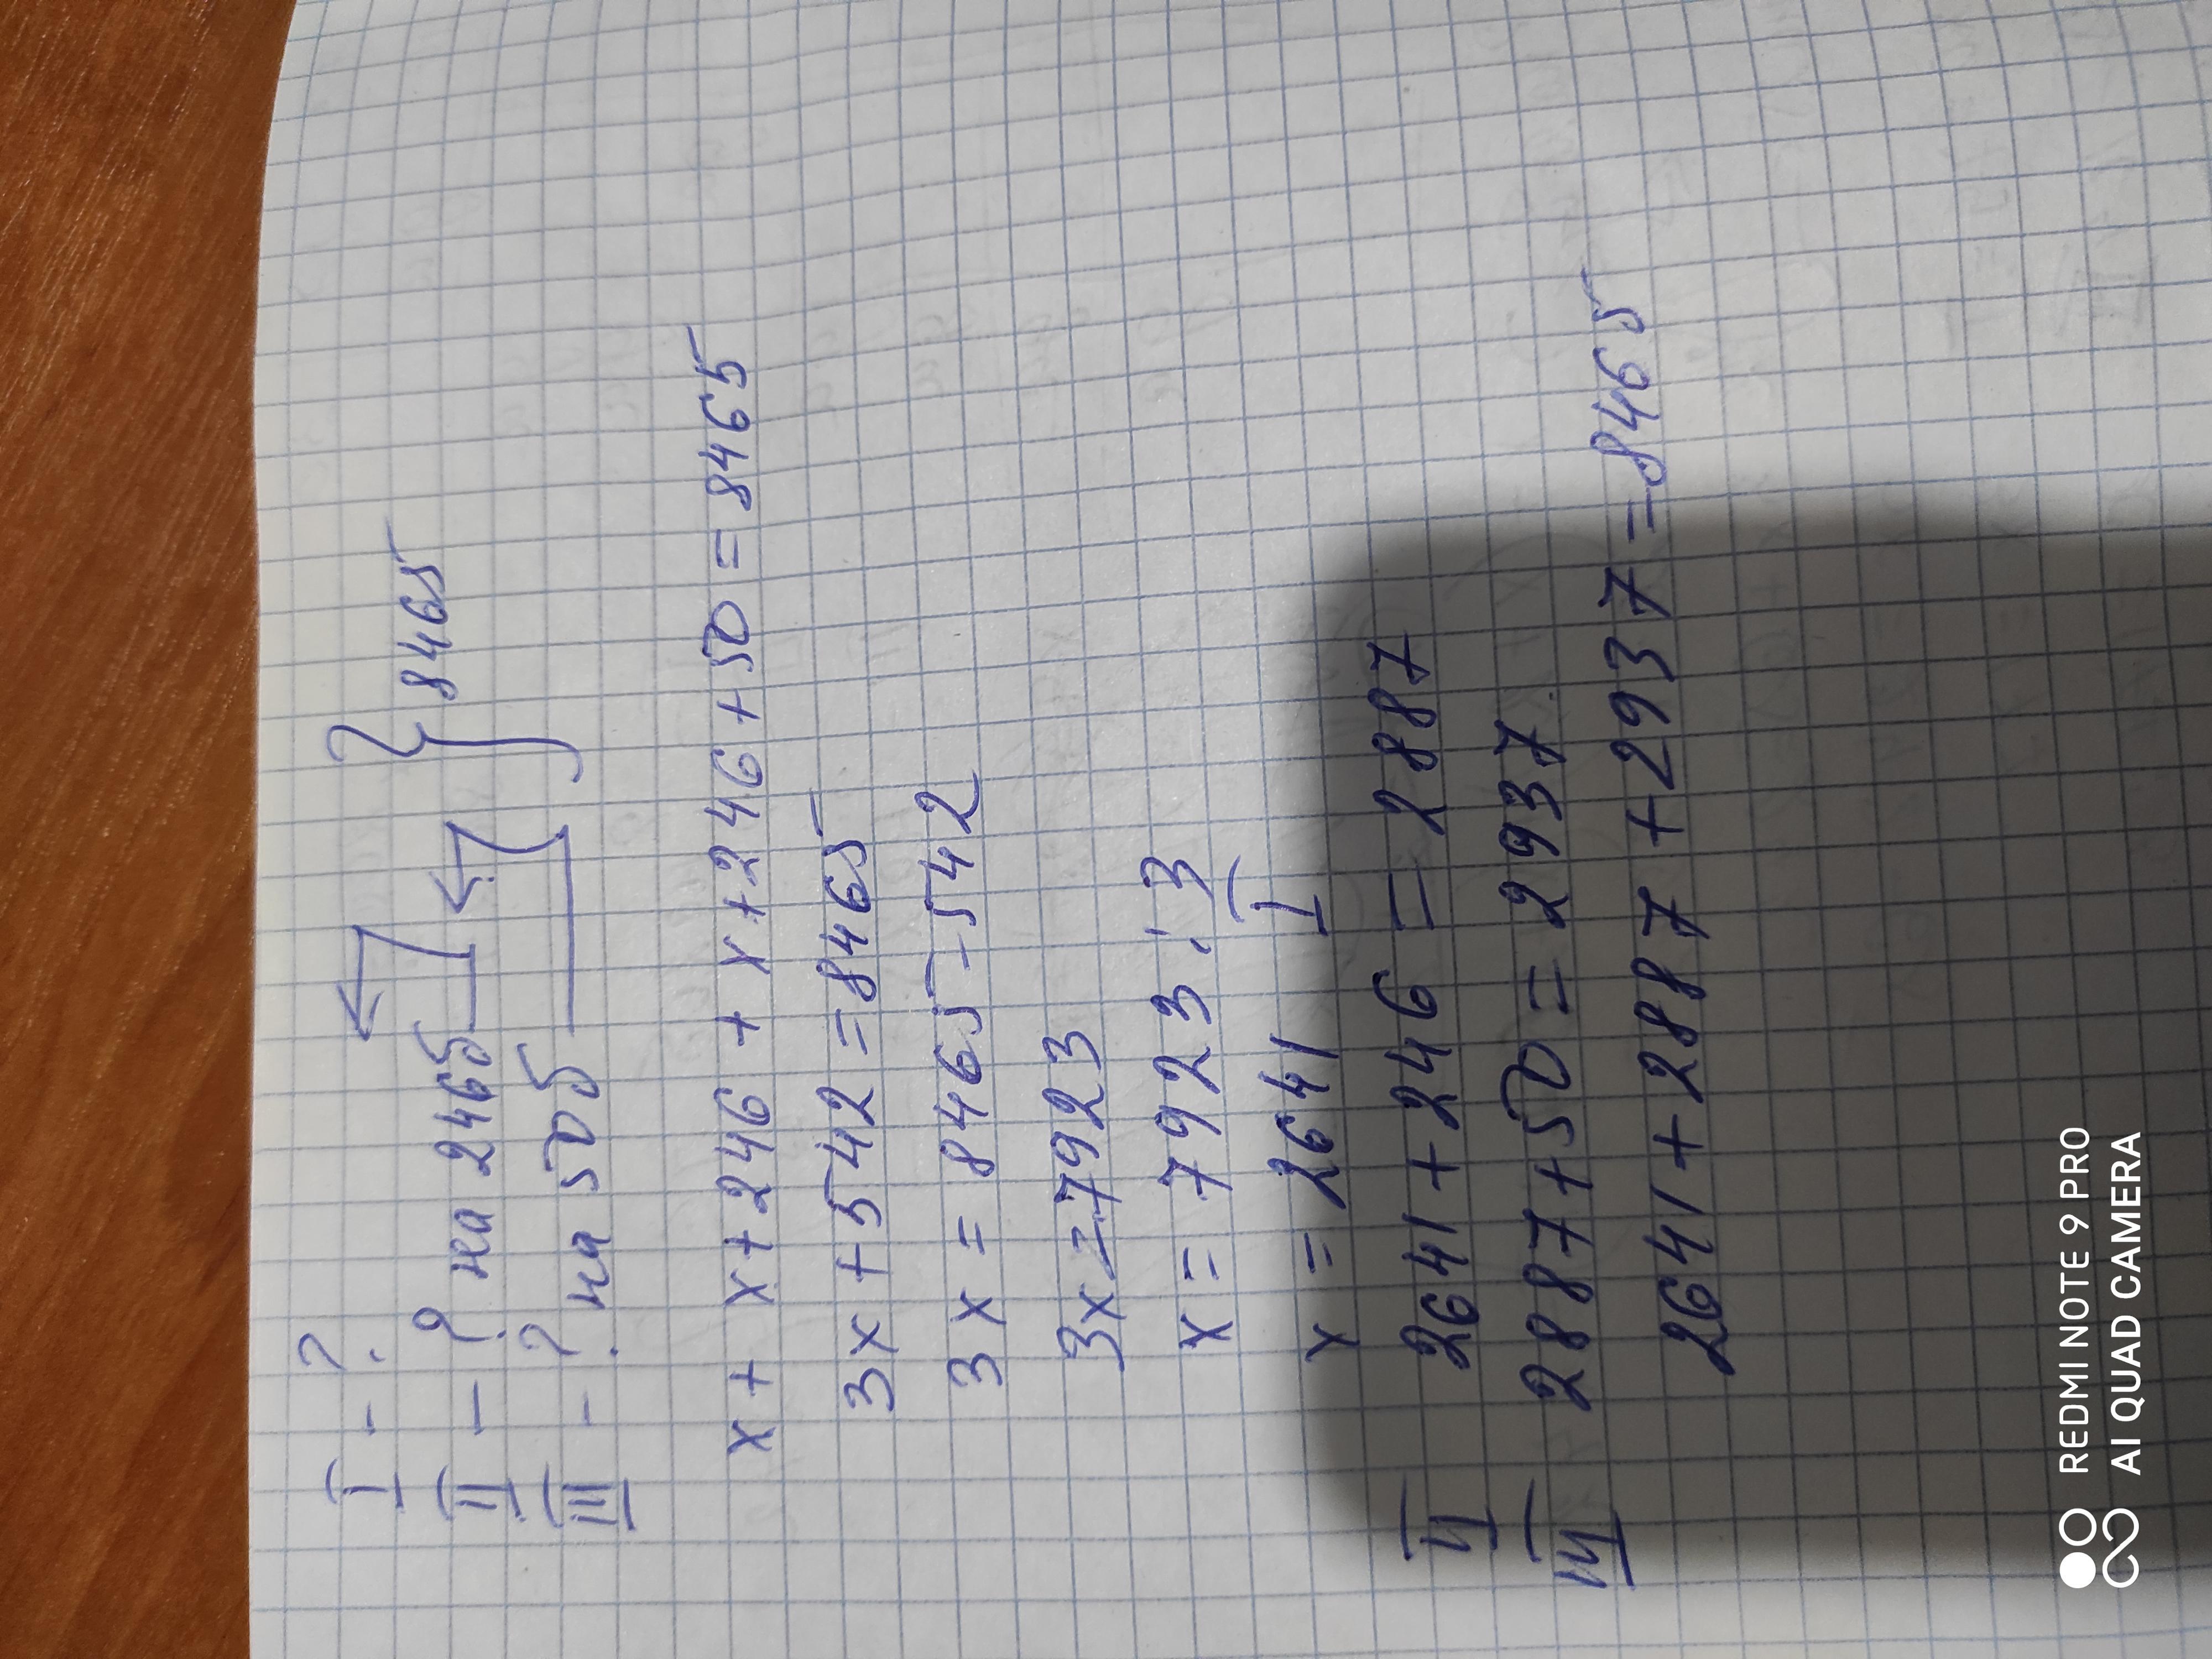 I - ?
II - ? на 246 б } 8465
III - ? на 50 б
x + x + 246 + x + 246 + 50 = 8465
3x + 542 = 8465
3x = 8465 - 542
3x = 7923
x = 7923 : 3
x = 2641 I
II 2641 + 246 = 2887
III 2887 + 50 = 2937
2641 + 2887 + 2937 = 8465
REDMI NOTE 9 PRO
AI QUAD CAMERA